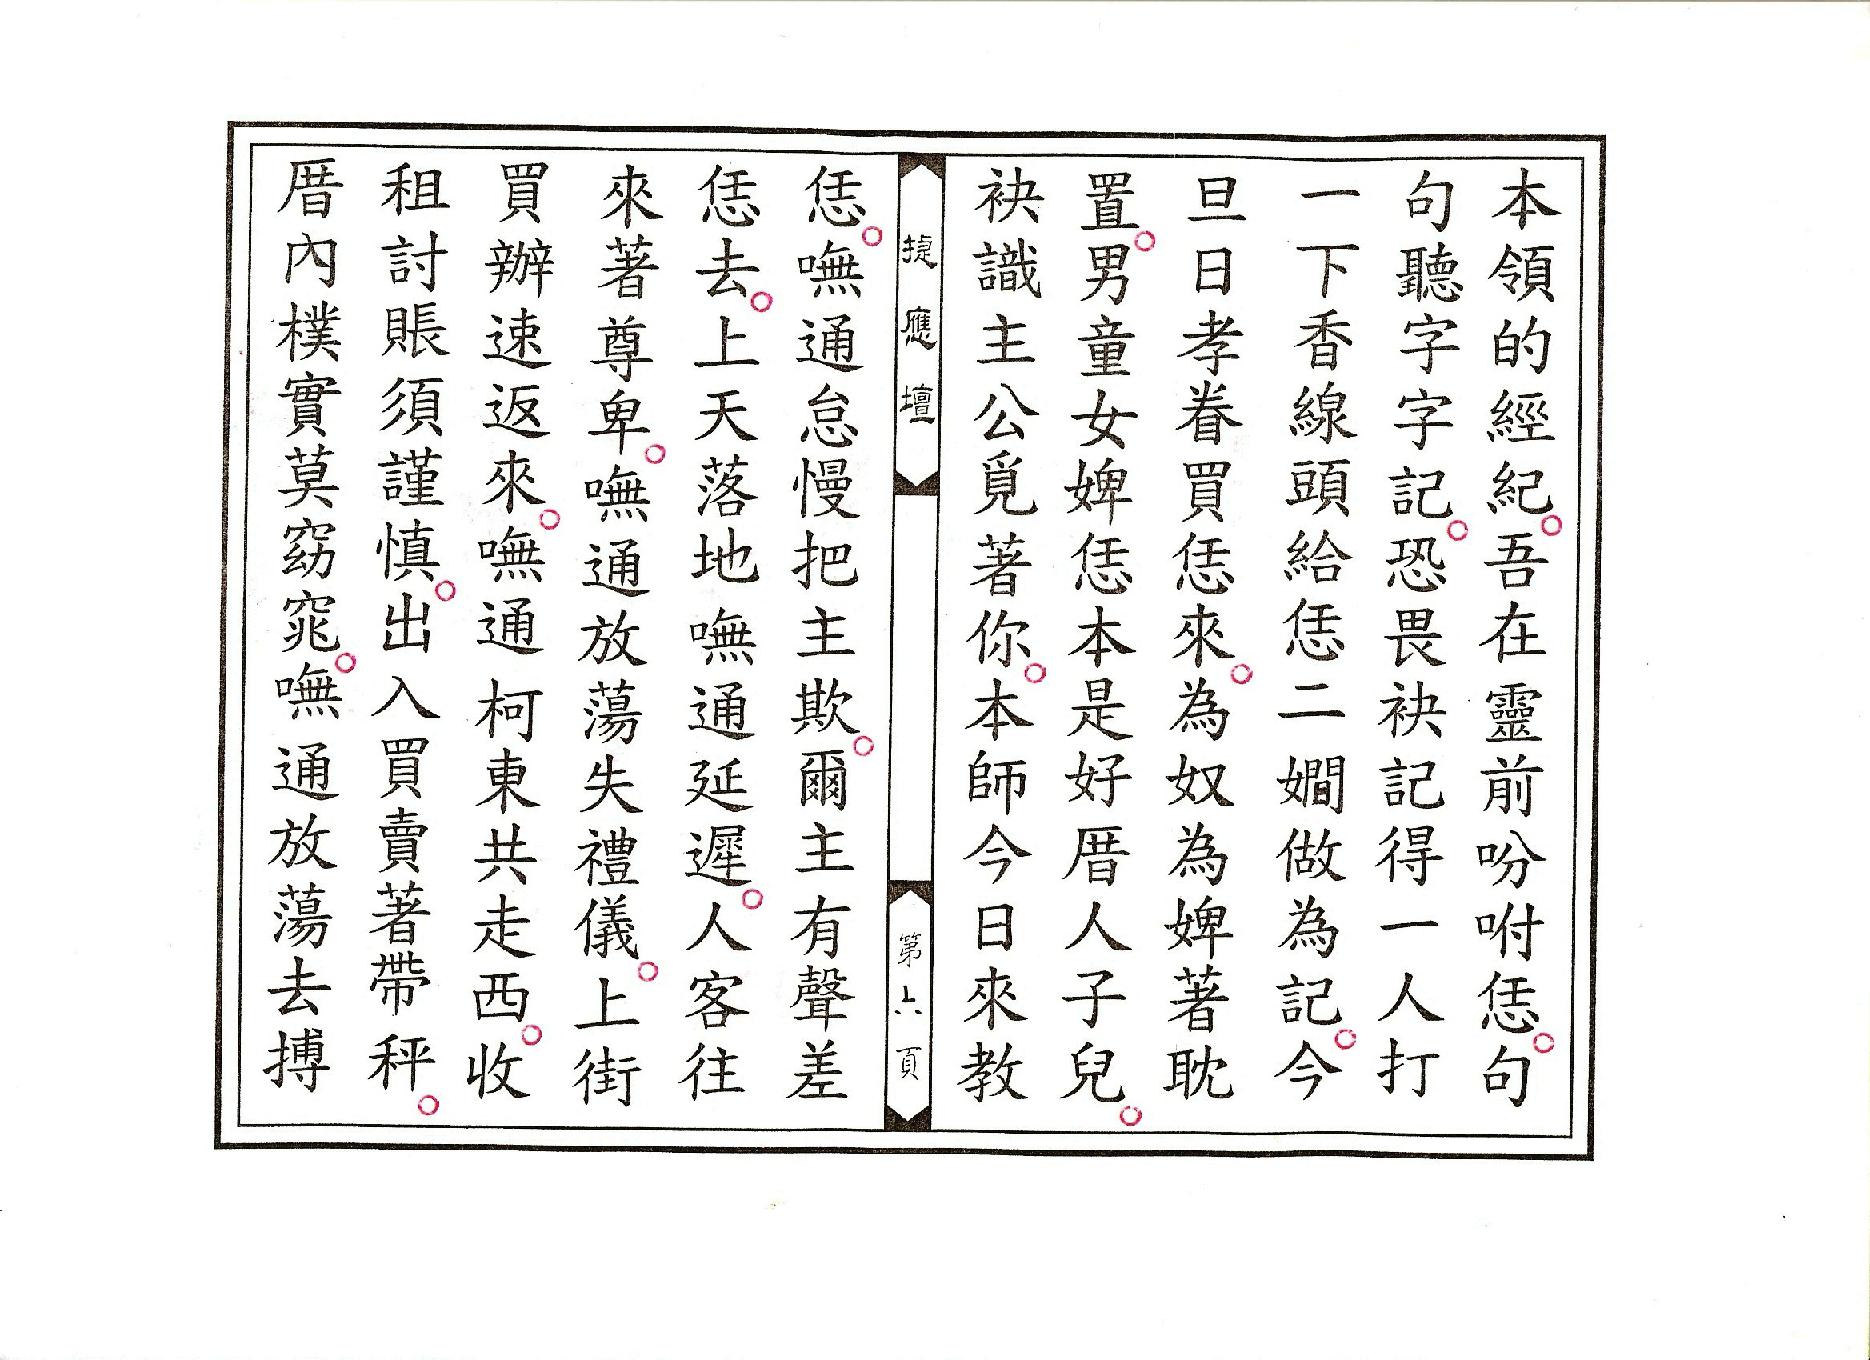 本領的經紀。吾在靈前吩咐恁。句
句聽字字記。恐畏袂記得一人打
一下香線頭給恁二嫺做為記。今
旦日孝眷買恁來。為奴為婢著耽
置。男童女婢恁本是好厝人子兒。
袂識主公覓著你。本師今日來教
捷應壇
第六頁
恁。嘸通怠慢把主欺。爾主有聲差
恁去。上天落地嘸通延遲。人客往
來著尊卑。嘸通放蕩失禮儀。上街
買辦速返來。嘸通柯東共走西。收
租討賬須謹慎。出入買賣著帶秤。
厝內樸實莫窈窕。嘸通放蕩去搏